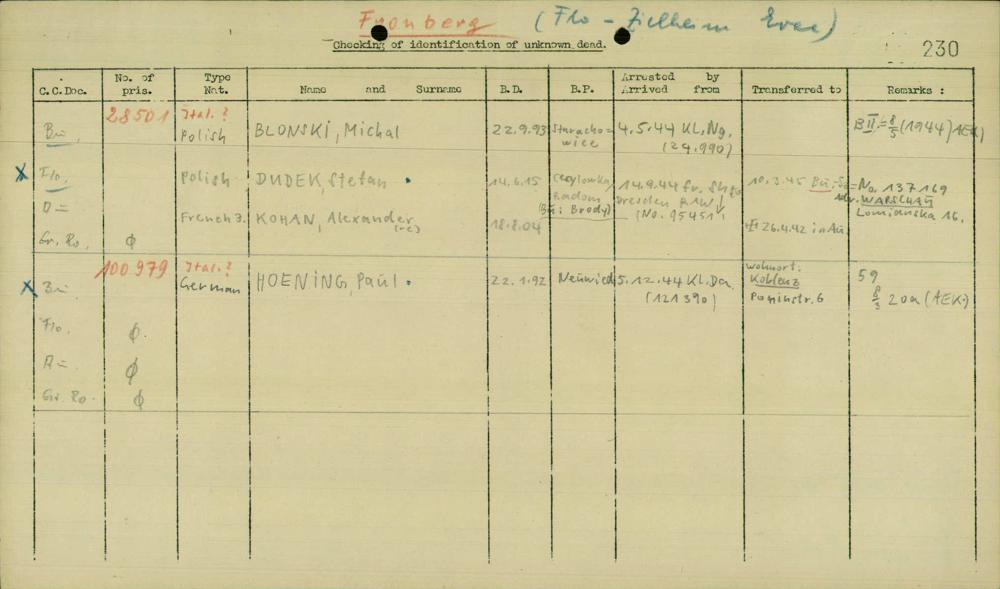 Fronberg (Flo - Zielheim
Checking of identification of unknown dead.
230
C.C.Doc.
No. of pris.
Type Nat.
Name and Surname
B.D.
B.P.
Arrested by
Arrived from
Transferred to
Remarks :
28501 Ital. ?
Bu. Polish BLONSKI, Michal 22.9.93 Staracho=
wice 4.5.44 KL. Ng. (24.990) B II. = 8/5 (1944) AEK)
x Flo. Polish DUDEK, Stefan . 14.6.15
Radom 14.9.44 10.3.45 Bu.
No. 137169
WARSCHAU
Lomianska 16.
D = French ? KOHAN, Alexander 18.8.04
(Bu: Brody)
Dresden RAW
(No. 95451) 26.4.42 in Au
Gr. Ro. ϕ
100979 Ital. ?
x Bu German HOENING, Paul . 22.1.92 Neuwied 5.12.44 KL. Da.
(121390)
wohnort:
Koblenz
59
20a (AEK.)
Flo. ϕ
A = ϕ
Gr. Ro. ϕ